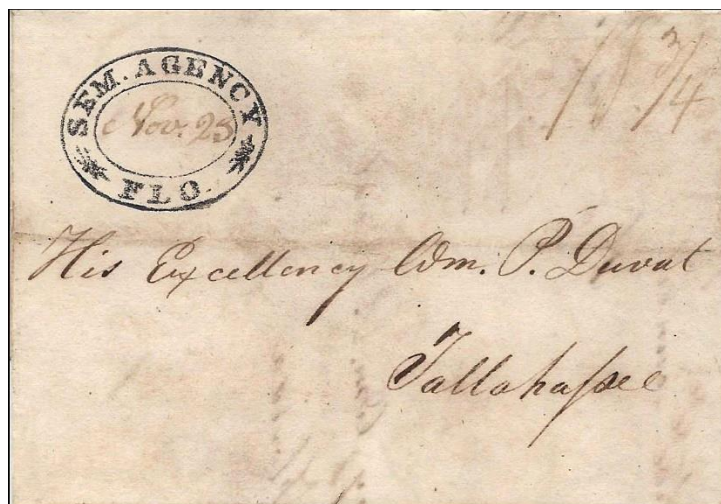 SEM. AGENCY
Nov. 25
FLO.
18 3/4
His Excellency Wm. P. Duval
Tallahaſsee